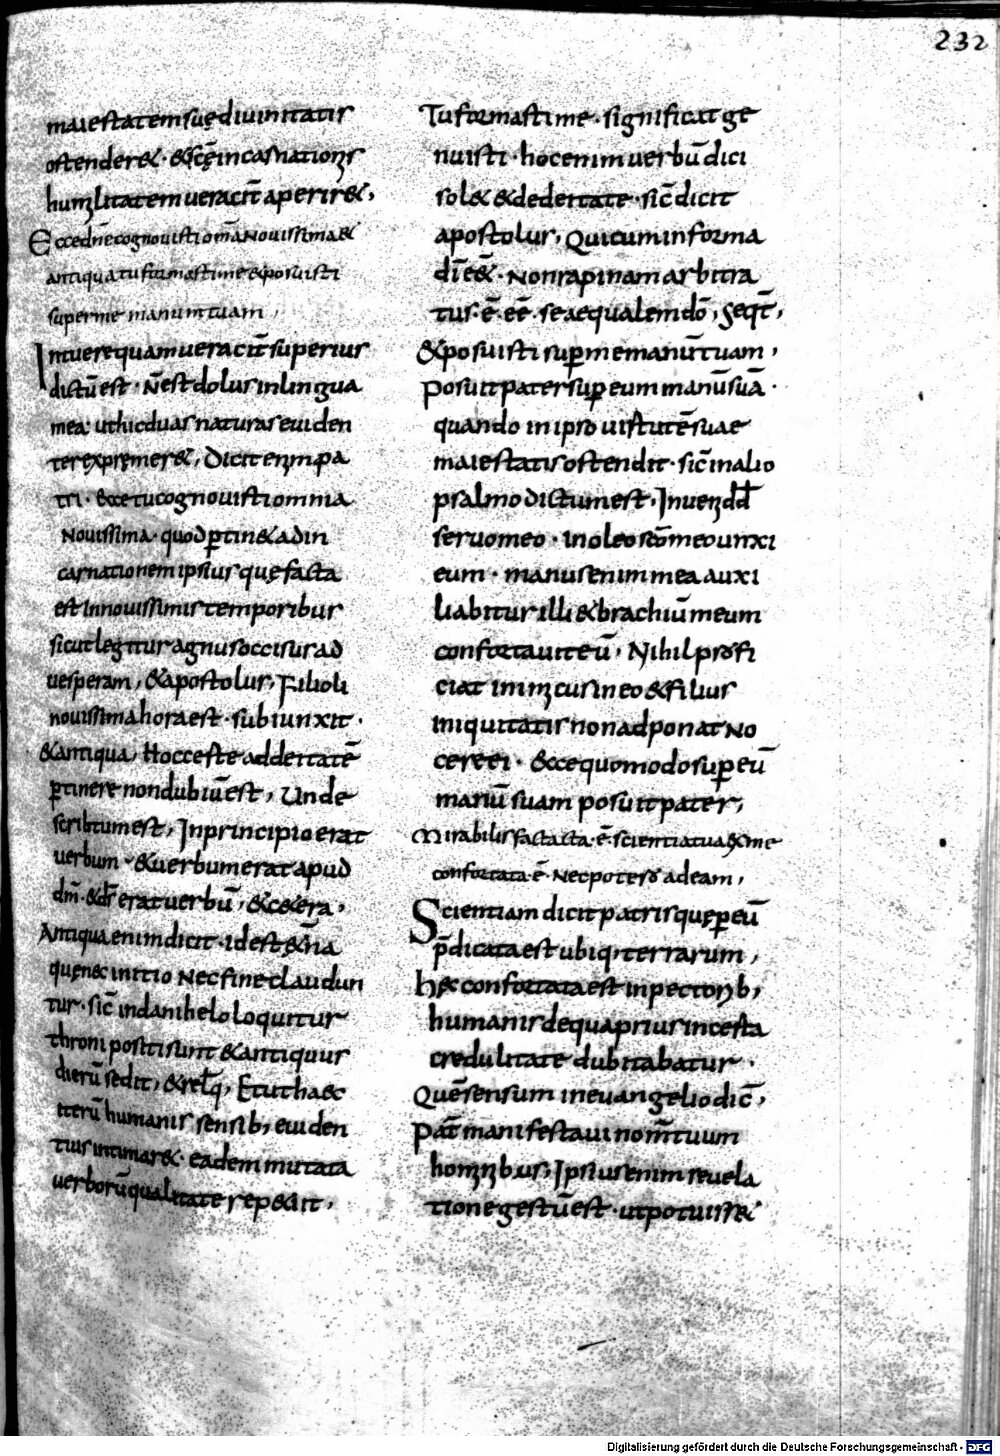 232
maiestatem suę diuinitatis
ostender&. &sc̄ę incarnationis
humilitatem ueracit̄ aperir&,
Ecce dn̄e cognouisti om̄a nouissima &
antiqua tu formasti me & posuisti
super me manum tuam,
Intuere quam ueracit̄ superius
dictū est. N̄ est dolus in lingua
mea. ut hic duas naturas euiden
ter exprꝫmer&, Dicit enim pa
tri. Ecce tu cognouisti omnia
Nouissima. quod ꝑtin& ad in
carnationem ipsius quę facta
est In nouissimis temporibus
sicut legitur agnus occisus ad
uesperam, & apostolus, Filioli
nouissima hora est. subiunxit.
& antiqua, Hoc ceste ad deitatē
ꝑtinere non dubiū est, Unde
scribtum est, In principio erat
uerbum & uerbum erat apud
dm̄. & ds̄ erat uerbū, & c&era,
Antiqua enim dicit. id est &n̄a
quę nec initio Nec fine claudun
tur. sic̄ in danihelo loquitur
throni positi sunt & antiquus
dierū sedit, & relq̄, Et ut haec
iterū humanis sensib; euiden
tius intimar&. eadem mutata
uerborū qualitate rep&it,
Tu formasti me. significat ge
nuisti. hoc enim uerbū dici
sol& & de deitate. sic̄ dicit
apostolus, Qui cum in forma
di ēē. Non rapinam arbitra
tus. ē. ēē. se aequalem dō, seqt̄,
& posuisti suꝑ me manū tuam,
Posuit pater suꝑ eum manū suā.
quando in ipso uirtutē suae
maiestatis ostendit. sic̄ in alio
psalmo dictum est, Inueni dd̄
seruo meo. in oleo sc̄o meo unxi
eum. manus enim mea auxi
liabitur illi & brachiū meum
confortauit eū, Nihil profi
ciat inimicus in eo & filius
iniquitatis non adponat no
cere ei. Ecce quomodo suꝑ eū
manū suam posuit pater,
Mirabilis facta cta. ē. scientia tua ex me
confortata. ē. Nec potero ad eam,
Scientiam dicit patris quę ꝑ eū
p̄dicata est ubiq; terrarum,
hęc confortata est in pectorib;
humanis de qua prius incerta
credulitate dubitabatur.
Quē sensum in euangelio dic̄,
Pat̄ manifestaui nom̄ tuum
hominibus, Ipsius enim reuela
tione gestū est. ut potuiss&
Digitalisierung gefördert durch die Deutsche Forschungsgemeinschaft - DFG